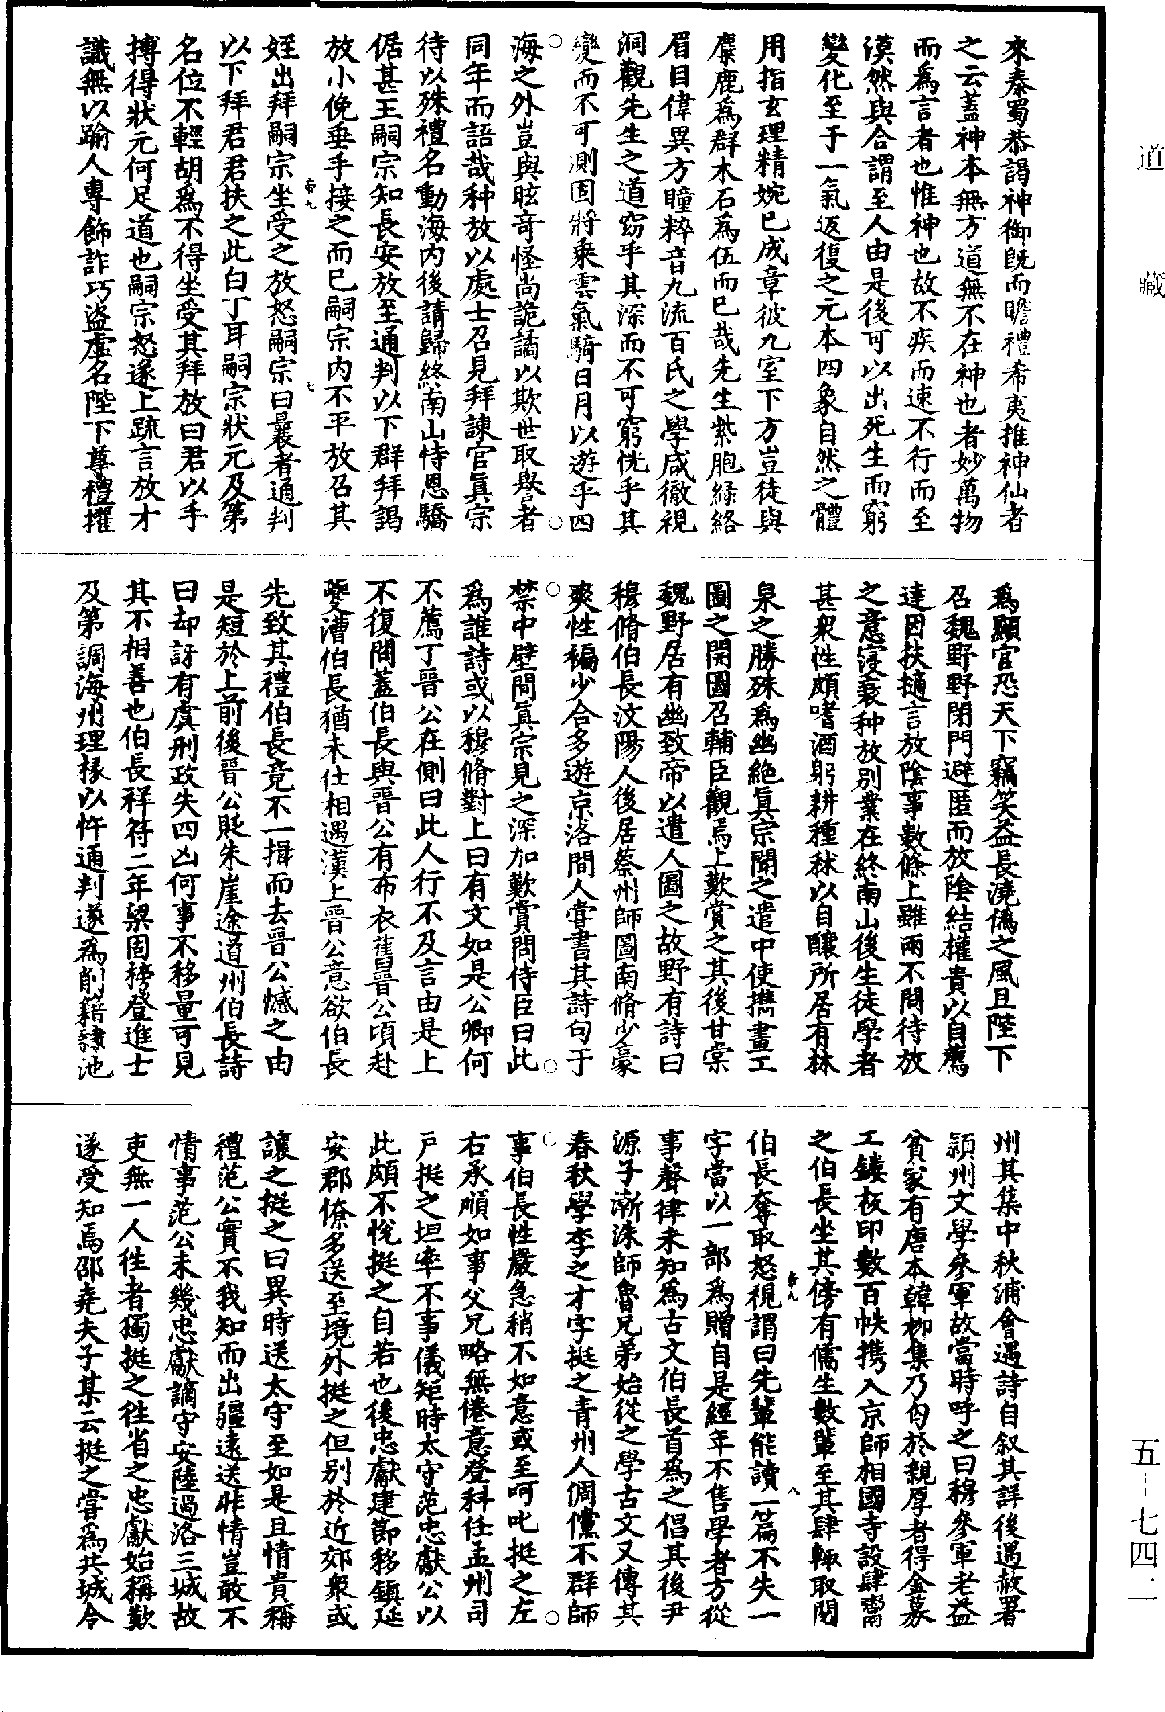 道藏
來秦蜀恭謁神御旣而瞻禮希夷推神仙者
之云蓋神本無方道無不在神也者妙萬物
而爲言者也惟神也故不疾而速不行而至
漠然與合謂至人由是後可以出死生而窮
變化至于一氣返復之元本四象自然之體
用指玄理精婉巳成章彼九室下方豈徒與
麋鹿爲群木石爲伍而巳哉先生紫胞綠絡
眉目偉異方瞳粹音九流百氏之學咸徹視
洞觀先生之道窈乎其深而不可窮恍乎其
變而不可測固將乘雲氣騎日月以遊乎四
海之外豈與眩竒怪尚詭譎以欺世取譽者
同年而語哉种放以處士召見拜諫官眞宗
待以殊禮名動海內後請歸終南山恃恩驕
倨甚王嗣宗知長安放至通判以下群拜謁
放小俛垂手接之而巳嗣宗內不平放召其
姪出拜嗣宗坐受之放怒嗣宗曰曩者通判
以下拜君君扶之此白丁耳嗣宗狀元及第
名位不輕胡爲不得坐受其拜放曰君以手
搏得狀元何足道也嗣宗怒遂上疏言放才
識無以踰人專飾詐巧盜虛名陛下尊禮擢
爲顯官恐天下竊笑益長澆僞之風且陛下
召魏野野閉門避匿而放陰結權貴以自薦
達因扶擿言放陰事數條上雖兩不問待放
之意寖衰种放别業在終南山後生徒學者
甚衆性頗嗜酒躬耕種秫以自釀所居有林
泉之勝殊爲幽絶眞宗聞之遣中使擕畫工
圖之開圖召輔臣觀焉上歎賞之其後甘棠
魏野居有幽致帝以遣人圖之故野有詩曰
穆脩伯長汶陽人後居蔡州師圖南脩少豪
爽性褊少合多遊京洛間人嘗書其詩句于
禁中壁間眞宗見之深加歎賞問侍臣曰此
爲誰詩或以穆脩對上曰有文如是公卿何
不薦丁晉公在側曰此人行不及言由是上
不復問蓋伯長與晉公有布衣舊晉公頃赴
夔漕伯長猶未仕相遇漢上晉公意欲伯長
先致其禮伯長竟不一揖而去晉公憾之由
是短於上前後晉公貶朱崖途道州伯長詩
曰却訝有虞刑政失四凶何事不移量可見
其不相善也伯長祥符二年梁固榜登進士
及第調海州理掾以忤通判遂爲削籍隷池
州其集中秋浦會遇詩自叙其詳後遇赦署
潁州文學參軍故當時呼之曰穆參軍老益
貧家有唐本韓柳集乃匄於親厚者得金募
工鏤板印數百帙擕入京師相國寺設肆鬻
之伯長坐其傍有儒生數輩至其肆輙取閱
伯長奪取怒視謂曰先輩能讀一篇不失一
字當以一部爲贈自是經年不售學者方從
事聲律未知爲古文伯長首爲之倡其後尹
源子漸洙師魯兄弟始從之學古文又傳其
春秋學李之才字挺之青州人倜儻不群師
事伯長性嚴急稍不如意或至呵叱挺之左
右承順如事父兄略無倦意登科任孟州司
戶挺之坦率不事儀矩時太守范忠獻公以
此頗不悅挺之自若也後忠獻建節移鎮延
安郡僚多送至境外挺之但别於近郊衆或
讓之挺之曰異時送太守至如是且情貴稱
禮范公實不我知而出疆遠送非情豈敢不
情事范公未幾忠獻謫守安陸過洛三城故
吏無一人往者獨挺之往省之忠獻始稱歎
遂受知焉邵堯夫子某云挺之嘗爲共城令
五--七四二